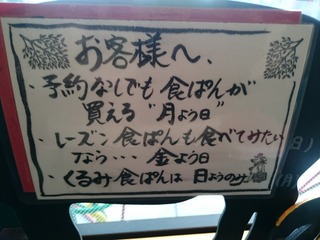 お客様へ、
・予約なしでも 食ぱんが
買える "月よう日"
・レーズン 食ぱんも食べてみたい
なら… 金よう日
・くるみ食ぱんは 日ようのみ